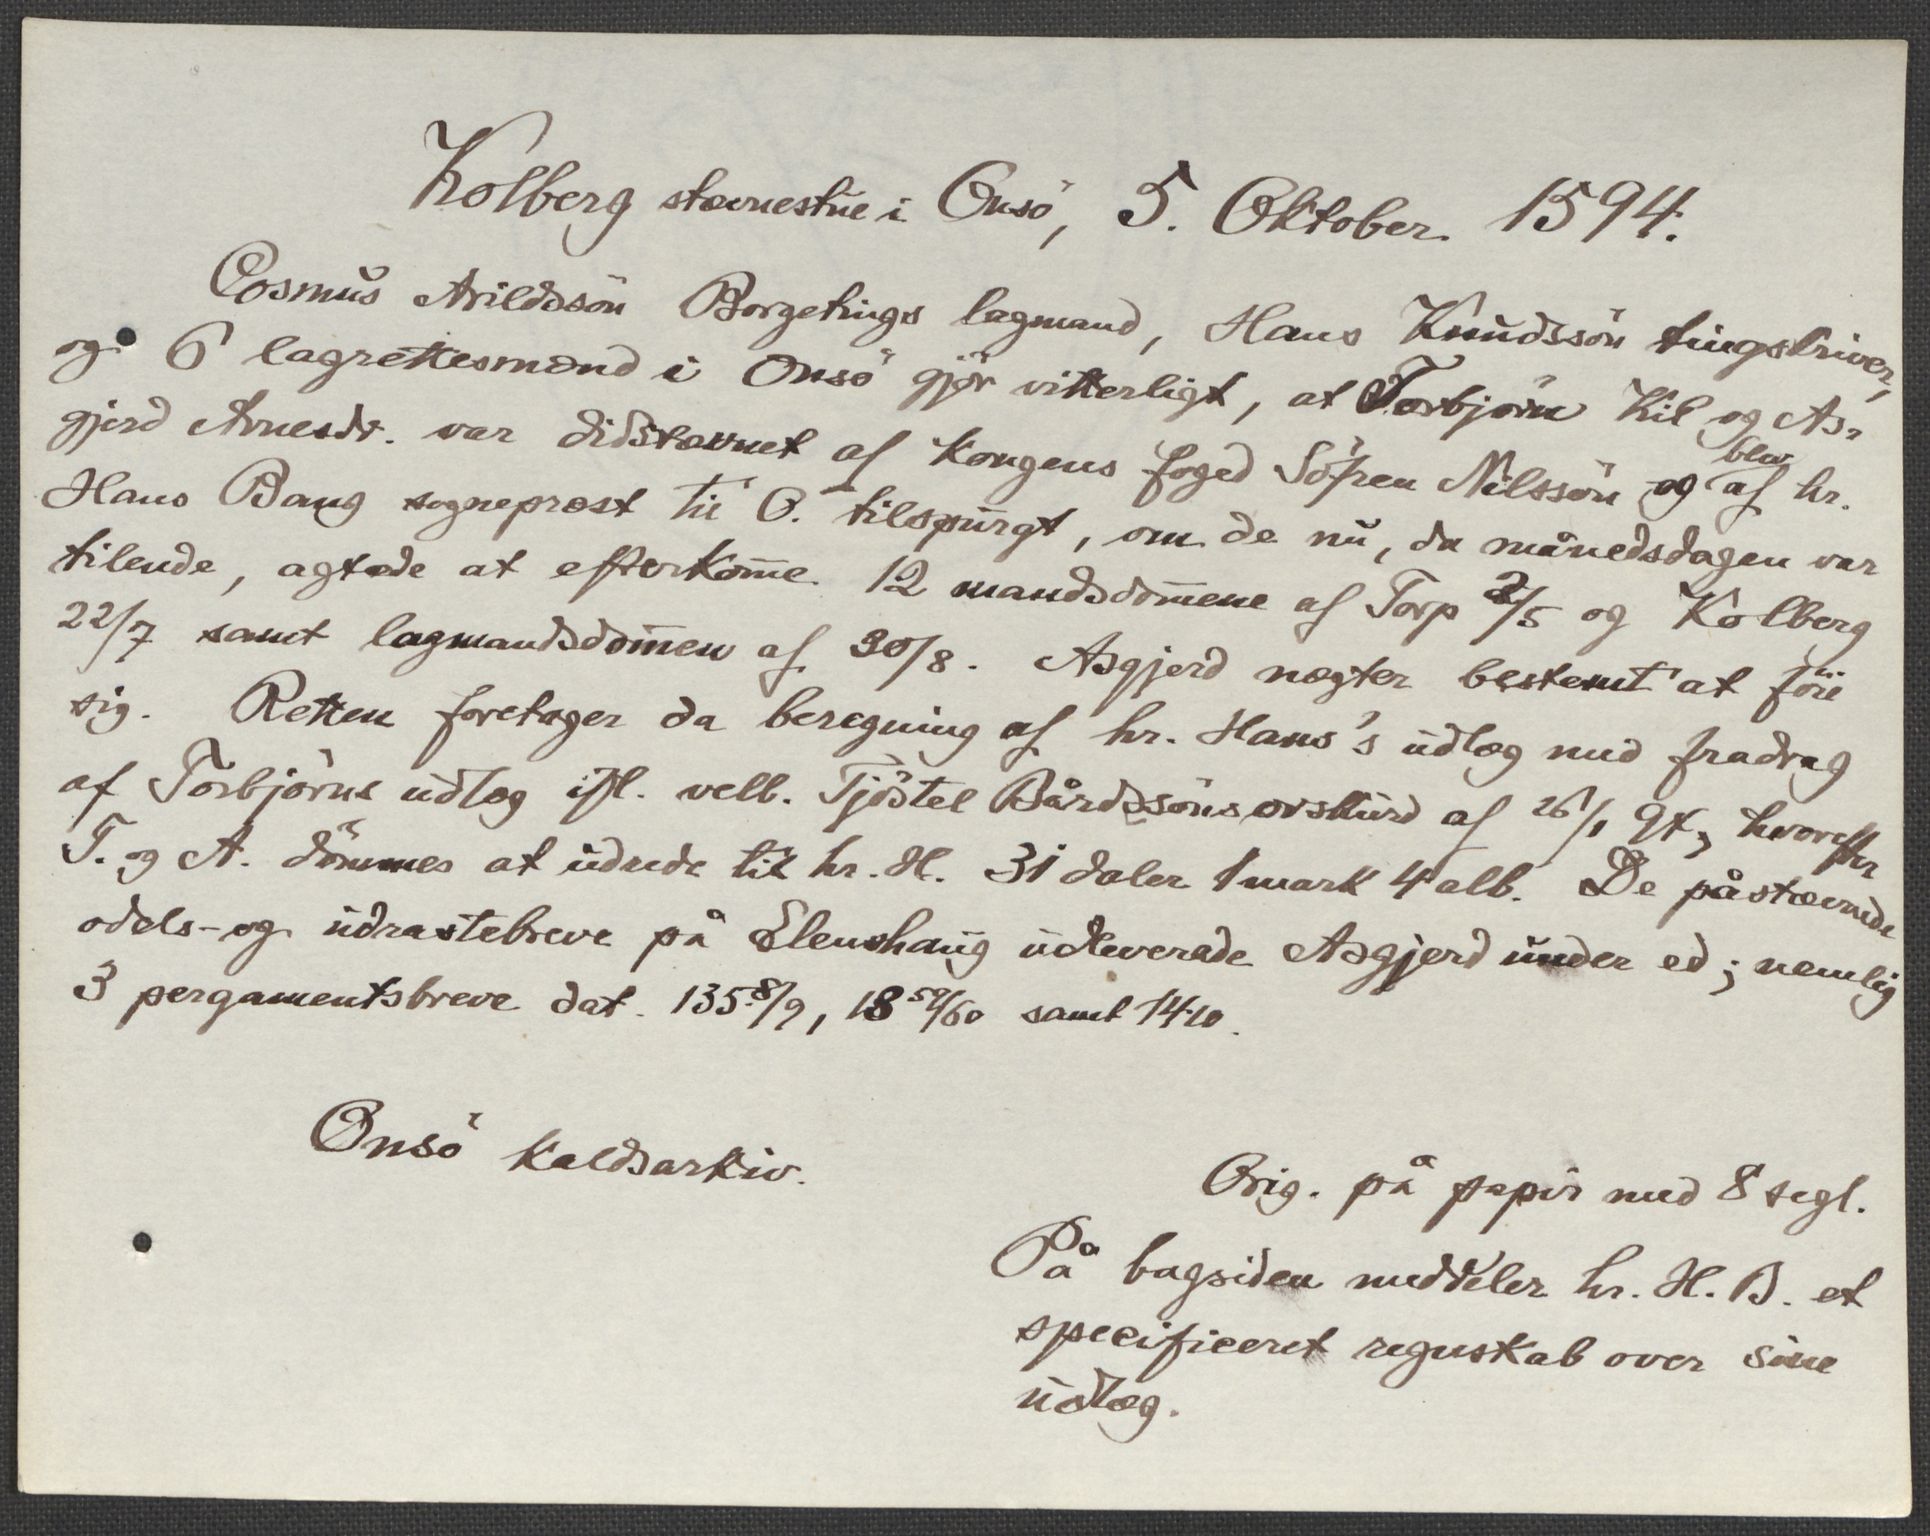 Kolberg stævnestue i Onsö, 5. Oktober 1594.
Cosmus Arildssön Borgetings lagmand, Hans Knudssön tingskriver,
og 6 lagrettesmænd i Onsö gjör vitterligt, at Torbjörn Kil og As-
gjerd Arnesdr. var didstævnet af kongens foged Sören Nilssön og blev af hr.
Hans Bang sogneprest til O. tilspurgt, om de nu, da månedsdagen var
tilende, agtede at efterkomme 12 mandsdommene af Torp 2/5 og Kolberg
22/7 samt lagmandsdommen af 30/8. Asgjerd nægter bestemt at föie
sig. Retten foretager da beregning af hr. Hans's udlæg med fradrag
af Torbjörns udlæg ifl. velb. Tjöstel Bårdssöns orskurd af 26/1 94, hvorefter
T. og A. dömmes at udrede til hr. H. 31 daler 1 mark 4 alb. De påstævnede
odels- og udrastebreve på Elenshaug udleverede Asgjerd under ed; nemlig
3 pergamentsbreve dat. 135.8/9, 13 59/60 samt 1410.
Onsö kaldsarkiv.
Orig. på papir med 8 segl.
På bagsiden meddeler hr. H. B. et
specificeret regnskab over sine
udlæg.